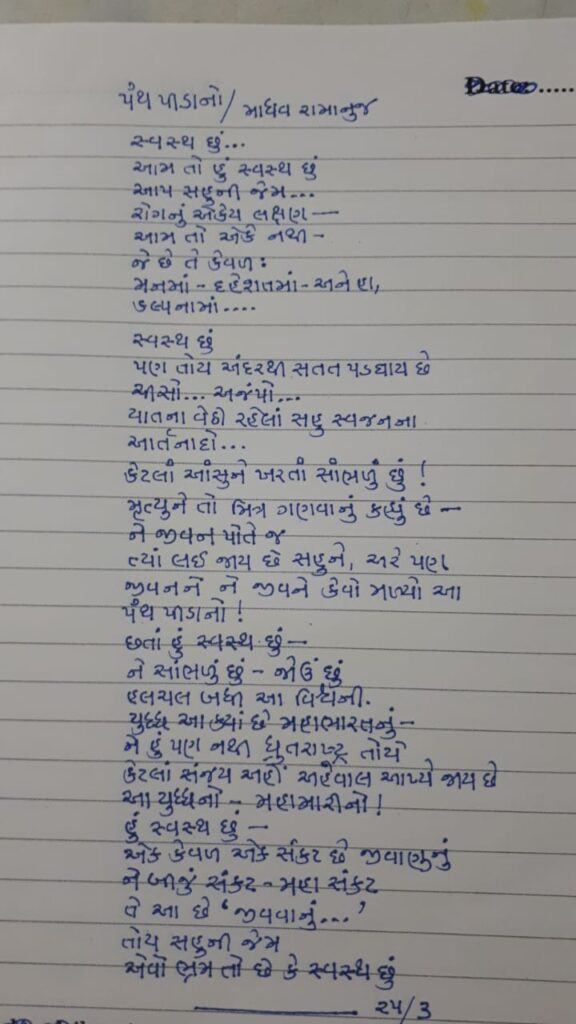 Date.....
પંથ પીડાનો / માધવ રામાનુજ
સ્વસ્થ છું...
આમ તો હું સ્વસ્થ છું
આપ સહુની જેમ...
રોગનું એકેય લક્ષણ —
આમ તો એકે નથી -
જે છે તે કેવળ :
મનમાં - દહેશતમાં - અને હા,
કલ્પનામાં ....
સ્વસ્થ છું
પણ તોય અંદરથી સતત પડઘાય છે
ચીસો... અજંપો...
યાતના વેઠી રહેલાં સહુ સ્વજનના
આર્તનાદો...
કેટલાં આંસુને ખરતાં સાંભળું છું !
મૃત્યુને તો મિત્ર ગણવાનું કહ્યું છે —
ને જીવન પોતે જ
ત્યાં લઈ જાય છે સહુને, અરે પણ
જીવનને ને જીવને કેવો મળ્યો આ
પંથ પીડાનો !
છતાં હું સ્વસ્થ છું —
ને સાંભળું છું - જોઉં છું
હલચલ બધી આ વિશ્વની.
યુધ્ધ આ ક્યાં છે મહાભારતનું -
ને હું પણ નથી ધ્રુતરાષ્ટ્ર તોયે
કેટલાં સંજય અહીં અહેવાલ આપ્યે જાય છે
આ યુધ્ધનો - મહામારીનો !
હું સ્વસ્થ છું —
એક કેવળ એક સંકટ છે જીવાણુનું
ને બીજું સંકટ - મહા સંકટ
તે આ છે ‘જીવવાનું...’
તોય સહુની જેમ
એવો ભ્રમ તો છે કે સ્વસ્થ છું
૨૫/૩